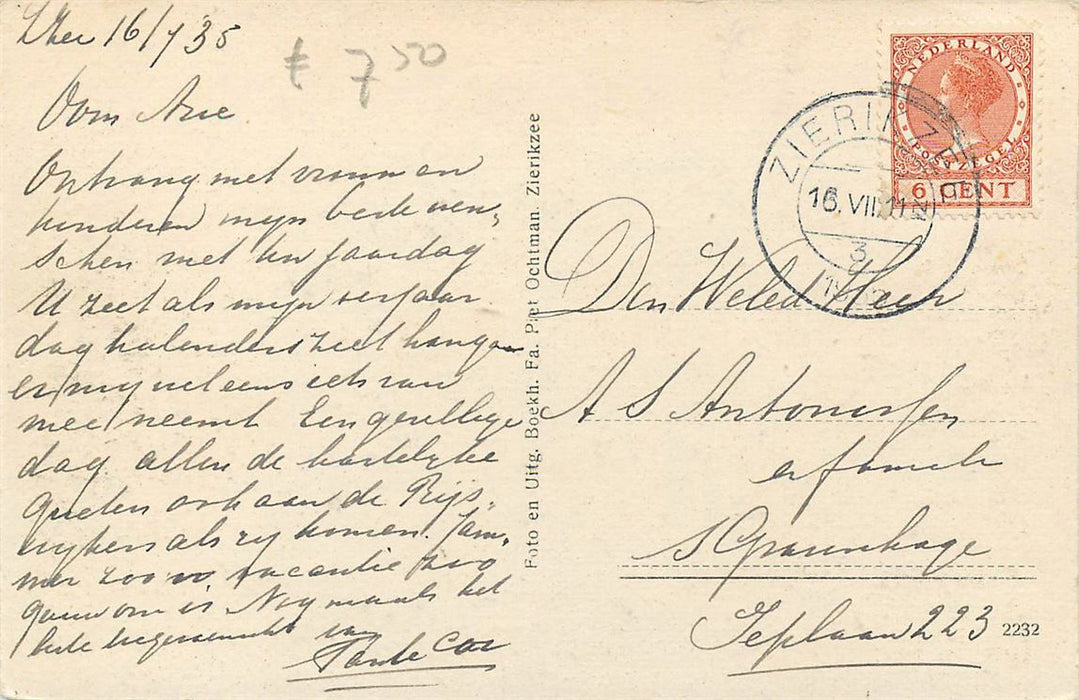 Zzee 16/7 35
£ 7 50
Oom Arie
Ontvang met vrouw en
kinderen mijn beste wen-
schen met uw jaardag
U ziet als mijn verjaar
dag kalender ziet hangen
er nog wel eens iets van
mee neemt Een gezellige
dag allen de hartelijke
groeten ook aan de Rijs-
wijkers als zij komen. Jam-
mer zoo'n vacantie zoo
gauw om is Nogmaals het
beste toegewenscht van
Tante Coo
Foto en Uitg. Boekh. Fa. Piet Ochtman. Zierikzee
NEDERLAND
POSTZEGEL
6 CENT
ZIERIKZEE
16. VII. 11
3
19
Den Weled Heer
A S Antonissen
en familie
s Gravenhage
Ieplaan 223
2232